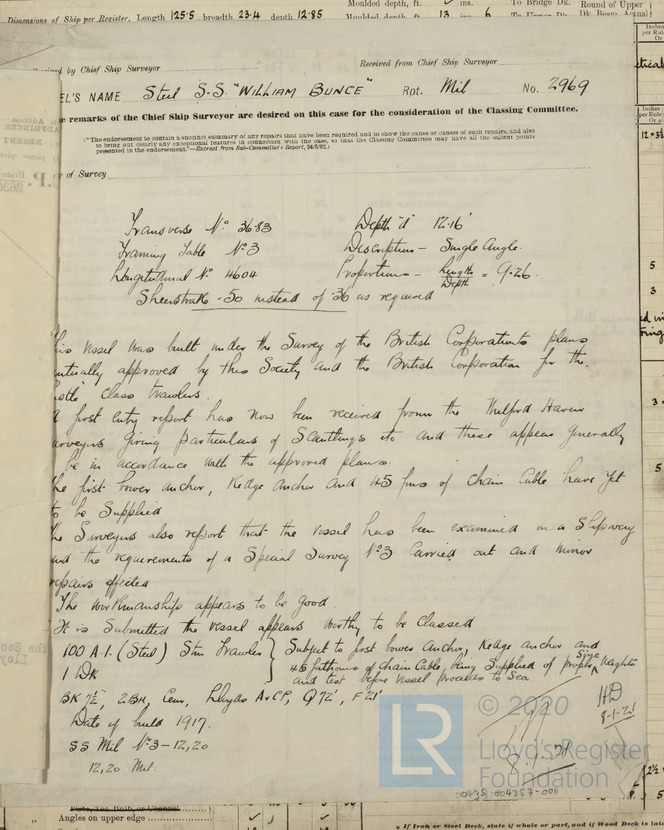 Dimensions of Ship per Register, Length 125.5 breadth 23.4 depth 12.85
Moulded depth, ft. ins. To Bridge Dk. Round of Upper
Moulded depth, ft. 13 ins. 6 To Upper Dk. Dk. Beam Actual
by Chief Ship Surveyor
Received from Chief Ship Surveyor
EL'S NAME Steel S.S. "WILLIAM BUNCE" Rpt. Mil No. 2969
e remarks of the Chief Ship Surveyor are desired on this case for the consideration of the Classing Committee.
("The endorsement to contain a succinct summary of any repairs that have been required and to show the cause or causes of such repairs, and also
to bring out clearly any exceptional features in connection with the case, so that the Classing Committee may have all the salient points
presented in the endorsement."—Extract from Sub-Committee's Report, 24/5/92.)
r of Survey
Transverse No. 3683 Depth "d" 12.16'
Framing Table No. 3 Description - Single Angle.
Longitudinal No. 4604 Proportions - Length/Depth = 9.26.
Sheerstrake .50 instead of .36 as required
his vessel was built under the Survey of the British Corporation to plans
utually approved by this Society and the British Corporation for the
stle" class trawlers.
first entry report has now been received from the Milford Haven
urveyors giving particulars of Scantlings etc and these appear generally
be in accordance with the approved plans.
he first bower anchor, Kedge anchor and 45 fms of chain cable have yet
to be supplied
he Surveyors also report that the vessel has been examined on a Slipway
and the requirements of a Special Survey No. 3 carried out and minor
repairs effected
The workmanship appears to be good
It is submitted the vessel appears worthy to be classed
100 A.1. (Steel) Stm Trawler } Subject to first bower Anchor, Kedge anchor and
1 Dk 45 fathoms of chain Cable, being supplied of proper size, Weights
and test before vessel proceeds to Sea
BK 7½", 2BH, Cem, Lloyds A&CP, Q 72', F 21'
HD
8-1-21
Date of build 1917.
SS Mil No. 3 - 12,20
12,20 Mil.
8.1.21
LR
© 2020
Lloyd's Register
Foundation
004357-004357-0011
Angles on upper edge
If Iron or Steel Deck, state if whole or part, and if Wood Deck is laid